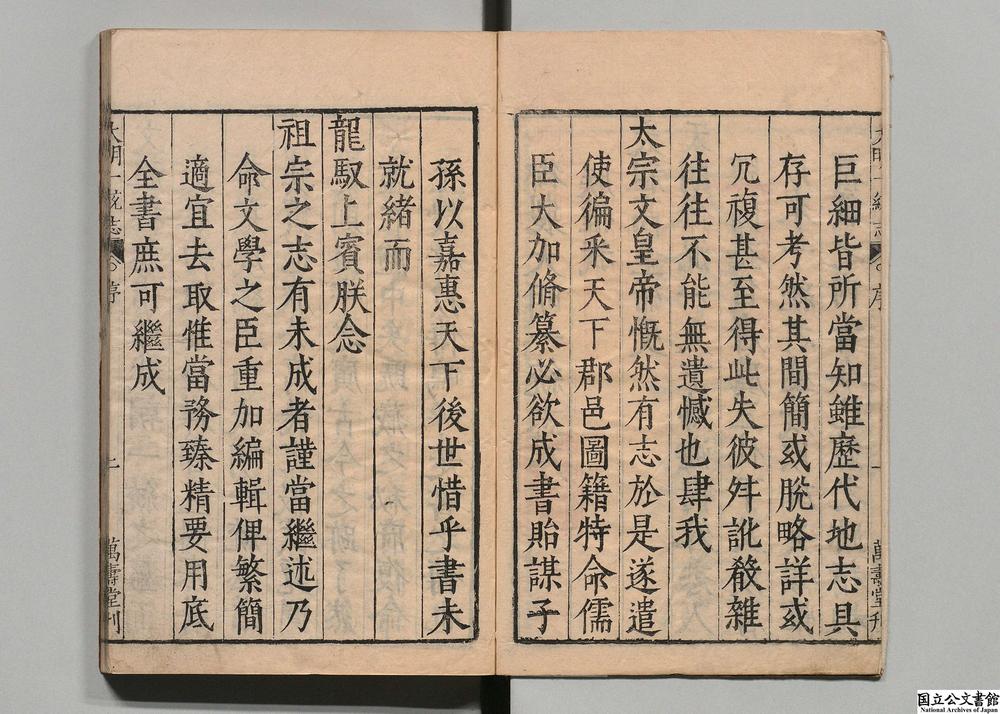 巨細皆所當知雖歷代地志具
存可考然其間簡或脫略詳或
冗複甚至得此失彼舛訛殽雜
往往不能無遺憾也肆我
太宗文皇帝慨然有志於是遂遣
使徧采天下郡邑圖籍特命儒
臣大加脩纂必欲成書貽謀子
孫以嘉惠天下後世惜乎書未
就緒而
龍馭上賓朕念
祖宗之志有未成者謹當繼述乃
命文學之臣重加編輯俾繁簡
適宜去取惟當務臻精要用底
全書庶可繼成
大明一統志 序 二 萬壽堂刊
国立公文書館
National Archives of Japan